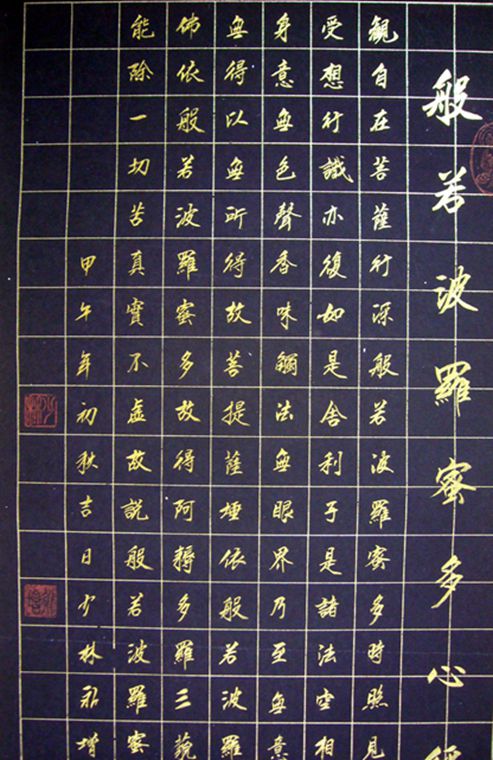 般若波羅蜜多心經
觀自在菩薩行深般若波羅蜜多時照見
受想行識亦復如是舍利子是諸法空相
身意無色聲香味觸法無眼界乃至無意
無得以無所得故菩提薩埵依般若波羅
佛依般若波羅蜜多故得阿耨多羅三藐
能除一切苦真實不虛故說般若波羅蜜
甲午年初秋吉日少林